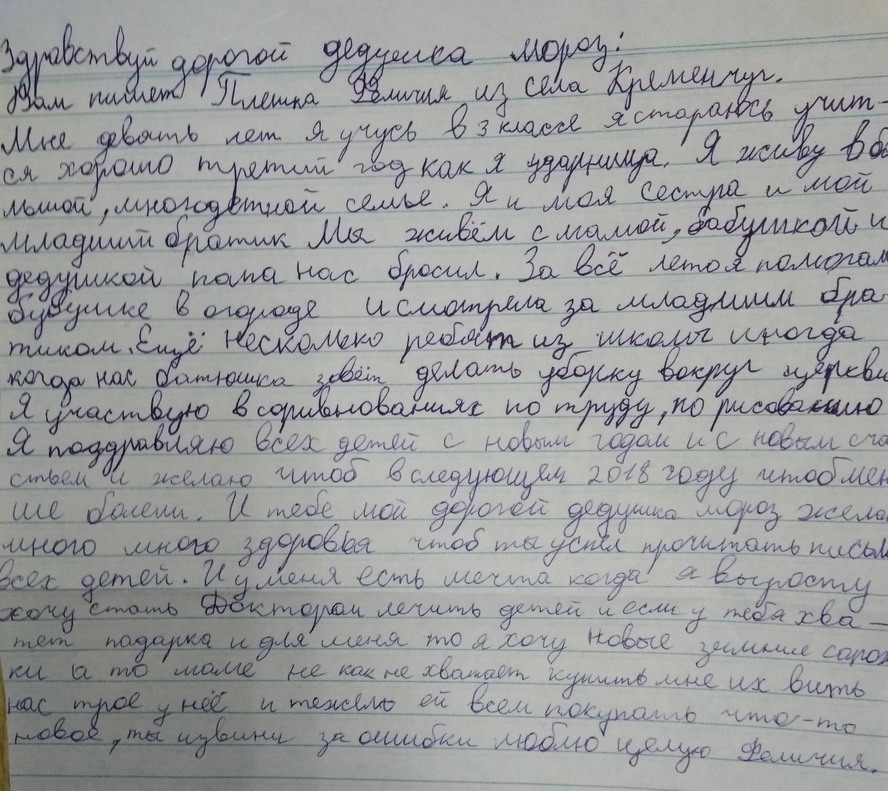 Здравствуй дорогой дедушка мороз!
Вам пишет Плешка Феличия из села Кременчуг.
Мне девять лет я учусь в 3 классе я стараюсь учит-
ся хорошо третий год как я ударница. Я живу в бо
льшой, многодетной семье. Я и моя сестра и мой
младший братик Мы живём с мамой, бабушкой и
дедушкой папа нас бросил. За всё лето я помогала
бубушке в огороде и смотрела за младшим бра-
тиком. Ещё несколько ребят из школы иногда
когда нас батюшка зовёт делать уборку вокруг церкви
Я участвую в соривнованиях по труду, по рисованию
Я поздравляю всех детей с новым годам и с новым сча
стьем и желаю чтоб в следующем 2018 году чтоб мен
ше болели. И тебе мой дорогой дедушка мороз желаю
много много здоровья чтоб ты успел прочитать письма
всех детей. И у меня есть мечта когда я выросту
хочу стать Доктором лечить детей и если у тебя хва-
тет падарка и для меня то я хочу новые зимние сапож
ки а то маме не как не хватает купить мне их вить
нас трое у неё и тежело ей всем покупать что-то
новое, ты извини за ошибки люблю целую Феличия.